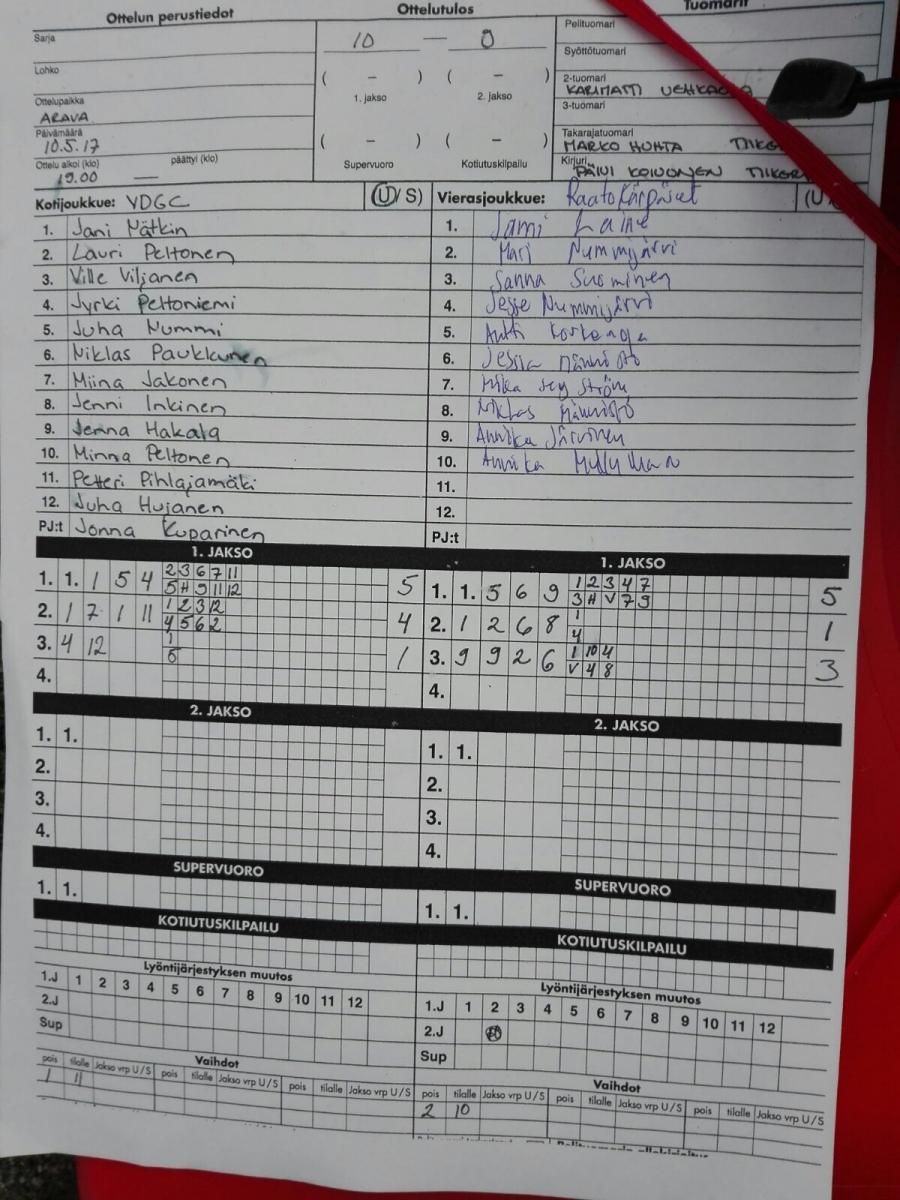 Ottelun perustiedot
Ottelutulos
Tuomarit
Sarja
Lohko
Ottelupaikka
ARAVA
Päivämäärä
10.5.17
Ottelu alkoi (klo) päättyi (klo)
19.00 —
10 — 9
( – ) ( – )
1. jakso 2. jakso
( – ) ( – )
Supervuoro Kotiutuskilpailu
Pelituomari
Syöttötuomari
2-tuomari
KARIMATTI
3-tuomari
Takarajatuomari
MARKO HUHTA
Kirjuri
PÄIVI KOIVONEN
Kotijoukkue: YDGC (U/S)
1. Jani Mätkin
2. Lauri Peltonen
3. Ville Viljanen
4. Jyrki Peltoniemi
5. Juha Nummi
6. Niklas Paukkunen
7. Miina Jakonen
8. Jenni Inkinen
9. Jenna Hakala
10. Minna Peltonen
11. Petteri Pihlajamäki
12. Juha Hujanen
PJ:t Jonna Kuparinen
Vierasjoukkue: Raatokärpäset (U
1. Jami Laine
2. Mari Nummijärvi
3. Sanna Suominen
4. Jesse Nummijärvi
5. Antti
6. Männistö
7. Mika
8. Niklas Männistö
9. Annika Järvinen
10. Annika
11.
12.
PJ:t
1. JAKSO
1. 1. 1 5 4 2 3 6 7 11 5
5 H 9 11 12
2. 1 7 1 11 1 2 3 12 4
4 5 6 2
3. 4 12 1 1
5
4.
2. JAKSO
1. 1.
2.
3.
4.
SUPERVUORO
1. 1.
KOTIUTUSKILPAILU
Lyöntijärjestyksen muutos
1.J 1 2 3 4 5 6 7 8 9 10 11 12
2.J
Sup
Vaihdot
pois tilalle Jakso vrp U/S pois tilalle Jakso vrp U/S pois tilalle Jakso vrp U/S
1 11
1. JAKSO
1. 1. 5 6 9 1 2 3 4 7 5
3 H V 7 9
2. 1 2 6 8 1 1
4
3. 9 9 2 6 1 10 4 3
V 4 8
4.
2. JAKSO
1. 1.
2.
3.
4.
SUPERVUORO
1. 1.
KOTIUTUSKILPAILU
Lyöntijärjestyksen muutos
1.J 1 2 3 4 5 6 7 8 9 10 11 12
2.J
Sup
Vaihdot
pois tilalle Jakso vrp U/S pois tilalle Jakso vrp U/S pois tilalle Jakso vrp U/S
2 10